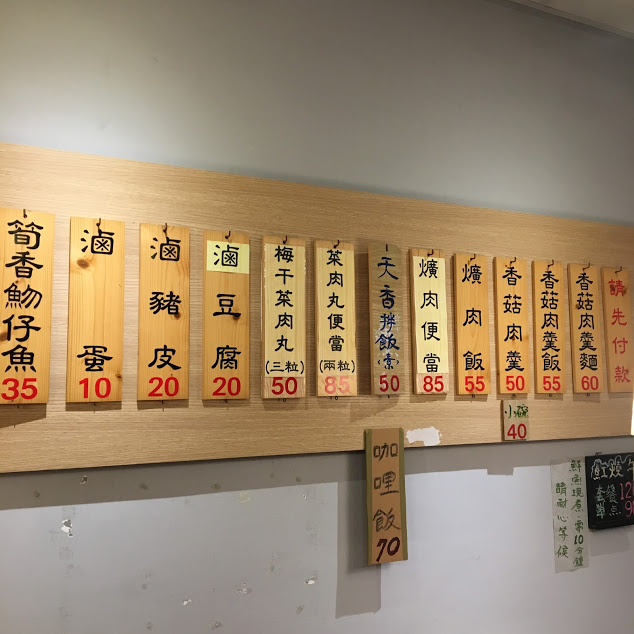 請先付款
香菇肉羹麵
60
香菇肉羹飯
55
香菇肉羹
50
小碗
40
爌肉飯
55
爌肉便當
85
天香拌飯(素)
50
菜肉丸便當
(兩粒)
85
梅干菜肉丸
(三粒)
50
滷豆腐
20
滷豬皮
20
滷蛋
10
筍香魩仔魚
35
咖哩飯
70
鮮魚現煮需10分鐘
請耐心等候
紅燒
套餐 12
單点 9